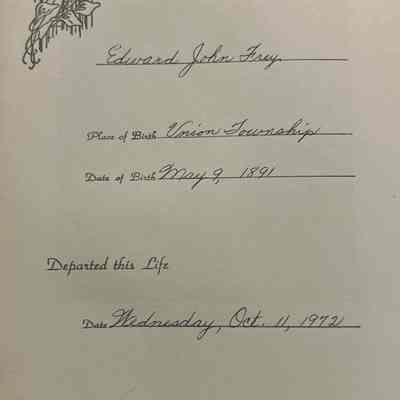 Edward John Frey
Place of Birth Union Township
Date of Birth May 9, 1891
Departed this Life
Date Wednesday, Oct. 11, 1972